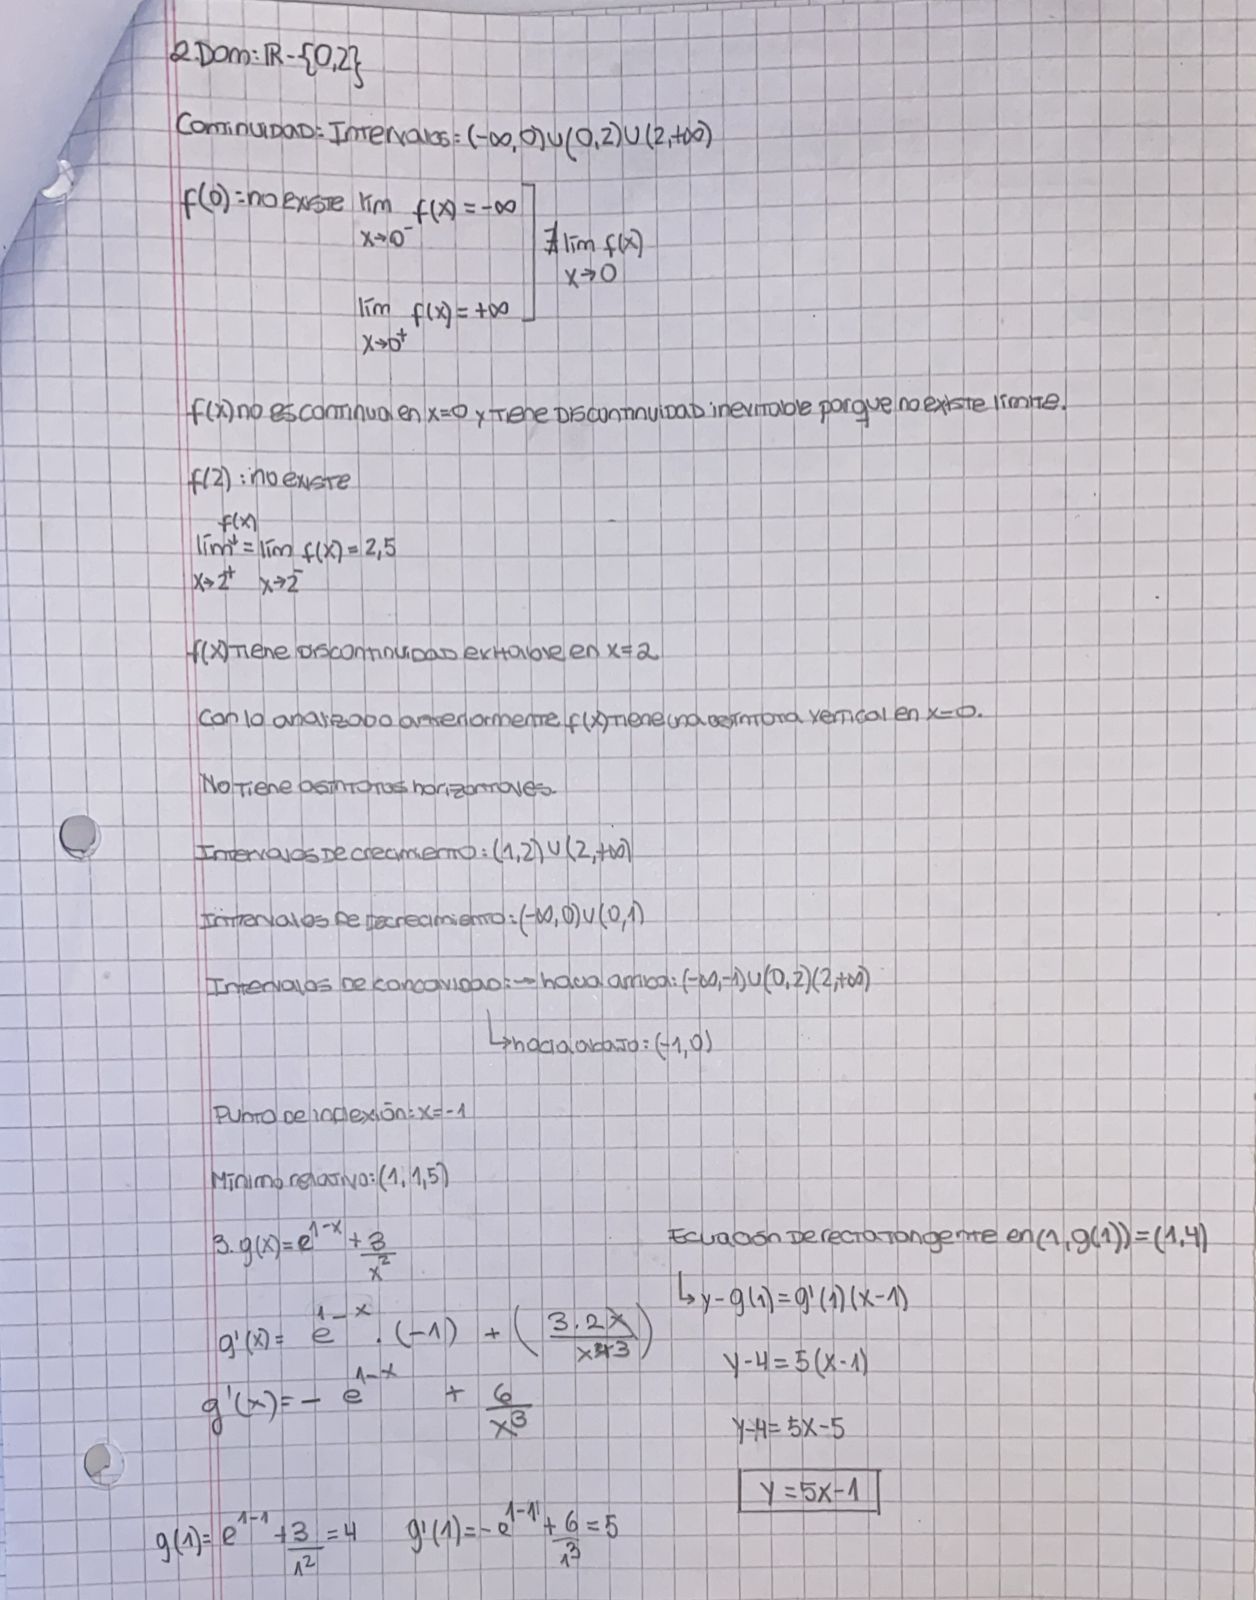 2. Dom: ℝ-{0,2}
Continuidad: Intervalos: (-∞,0)∪(0,2)∪(2,+∞)
f(0): no existe lim f(x) = -∞
x→0⁻
∄ lim f(x)
x→0
lim f(x) = +∞
x→0⁺
f(x) no es continua en x=0 y tiene discontinuidad inevitable porque no existe límite.
f(2): no existe
f(x)
lim = lim f(x) = 2,5
x→2⁺ x→2⁻
f(x) tiene discontinuidad evitable en x=2
Con lo analizado anteriormente f(x) tiene una asíntota vertical en x=0.
No tiene asíntotas horizontales.
Intervalos de crecimiento: (1,2)∪(2,+∞)
Intervalos de decrecimiento: (-∞,0)∪(0,1)
Intervalos de concavidad: → hacia arriba: (-∞,-1)∪(0,2)(2,+∞)
↳ hacia abajo: (-1,0)
Punto de inflexión: x=-1
Mínimo relativo: (1, 1,5)
3. g(x) = e^(1-x) + 3/x²
g'(x) = e^(1-x) . (-1) + (3.2x/x³)
g'(x) = - e^(1-x) + 6/x³
g(1) = e^(1-1) + 3/1² = 4 g'(1) = -e^(1-1) + 6/1³ = 5
Ecuación de recta tangente en (1, g(1)) = (1,4)
↳ y - g(1) = g'(1) (x-1)
y-4 = 5(x-1)
y-4 = 5x-5
y = 5x-1